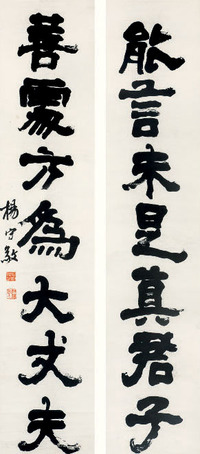 能言未是真君子
善處方為大丈夫
楊守敬